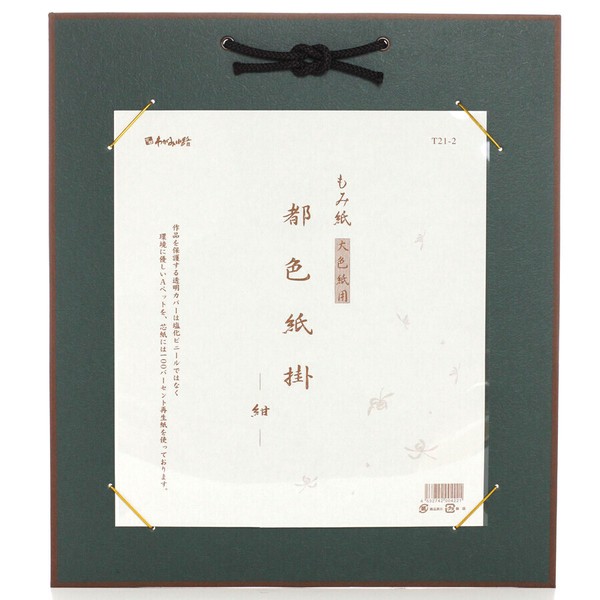 わがみ小路
T21-2
もみ紙
大色紙用
都色紙掛
―紺―
作品を保護する透明カバーは塩化ビニールではなく
環境に優しいAペットを、芯紙には100パーセント再生紙を使っております。